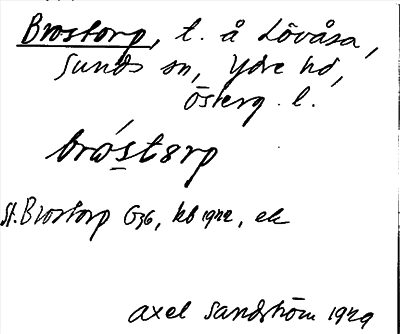 Brostorp, t. å Lövåsa,
Sunds sn, Ydre hd,
Österg. l.
bro̱´storp
St. Brostorp G36, kb 1942, ek
Axel Sandström 1929